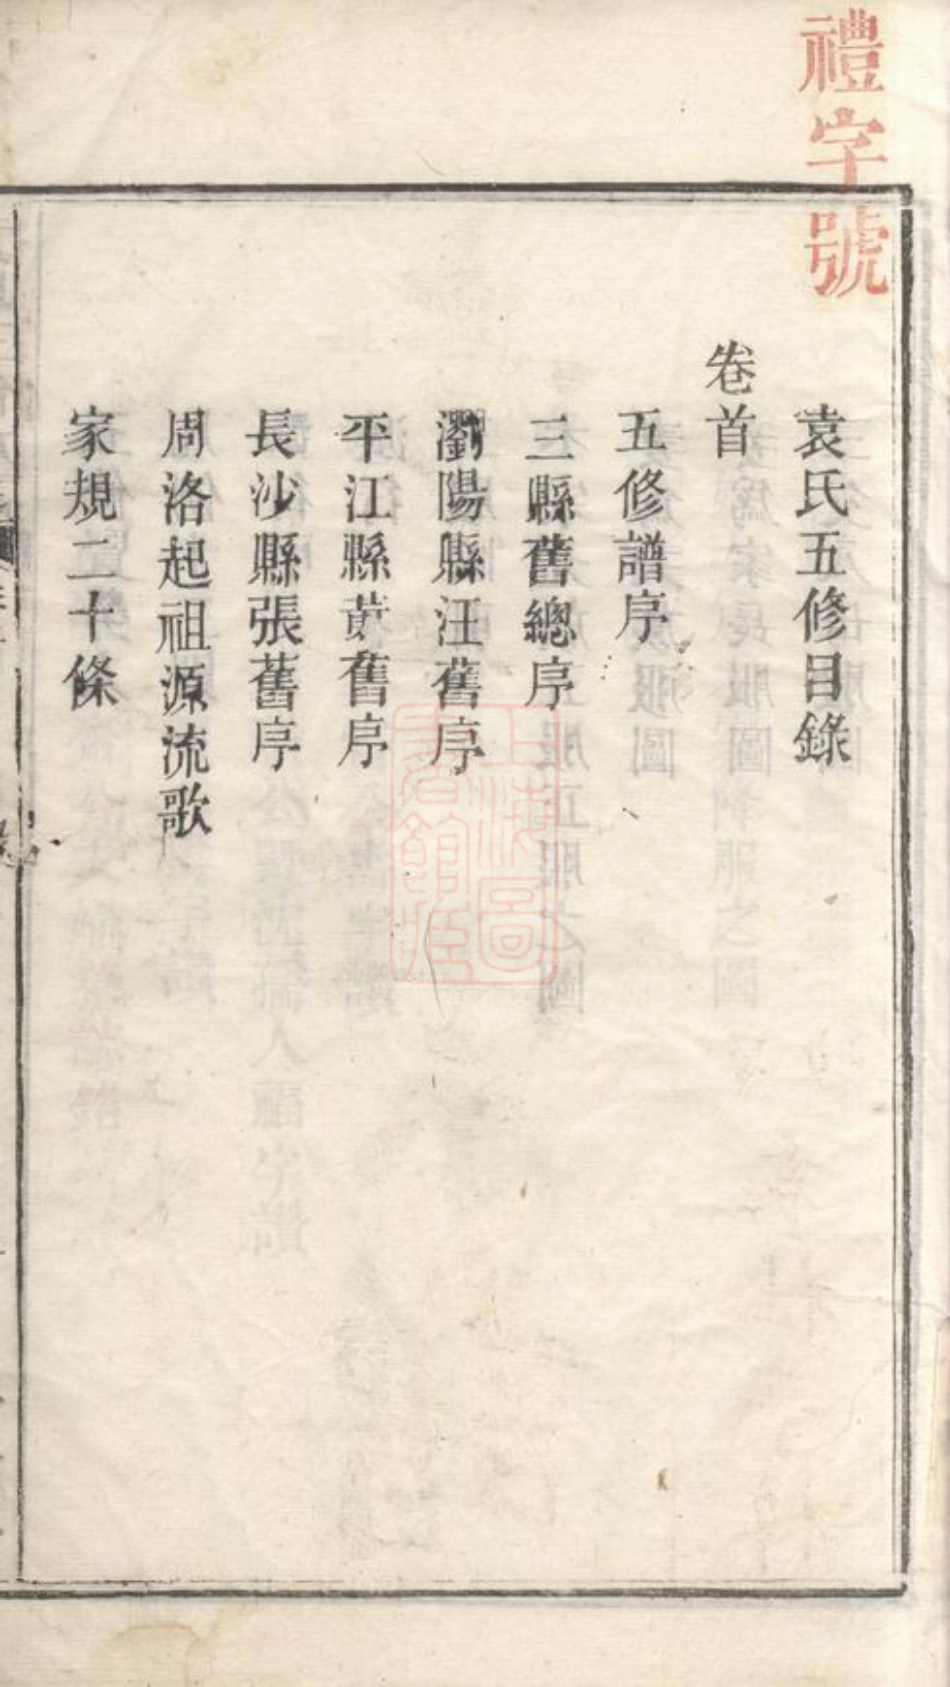 禮字號
袁氏五修目錄
卷首
五修譜序
三縣舊總序
瀏陽縣汪舊序
平江縣黃舊序
長沙縣張舊序
周洛起祖源流歌
家規二十條
上海圖
書館藏